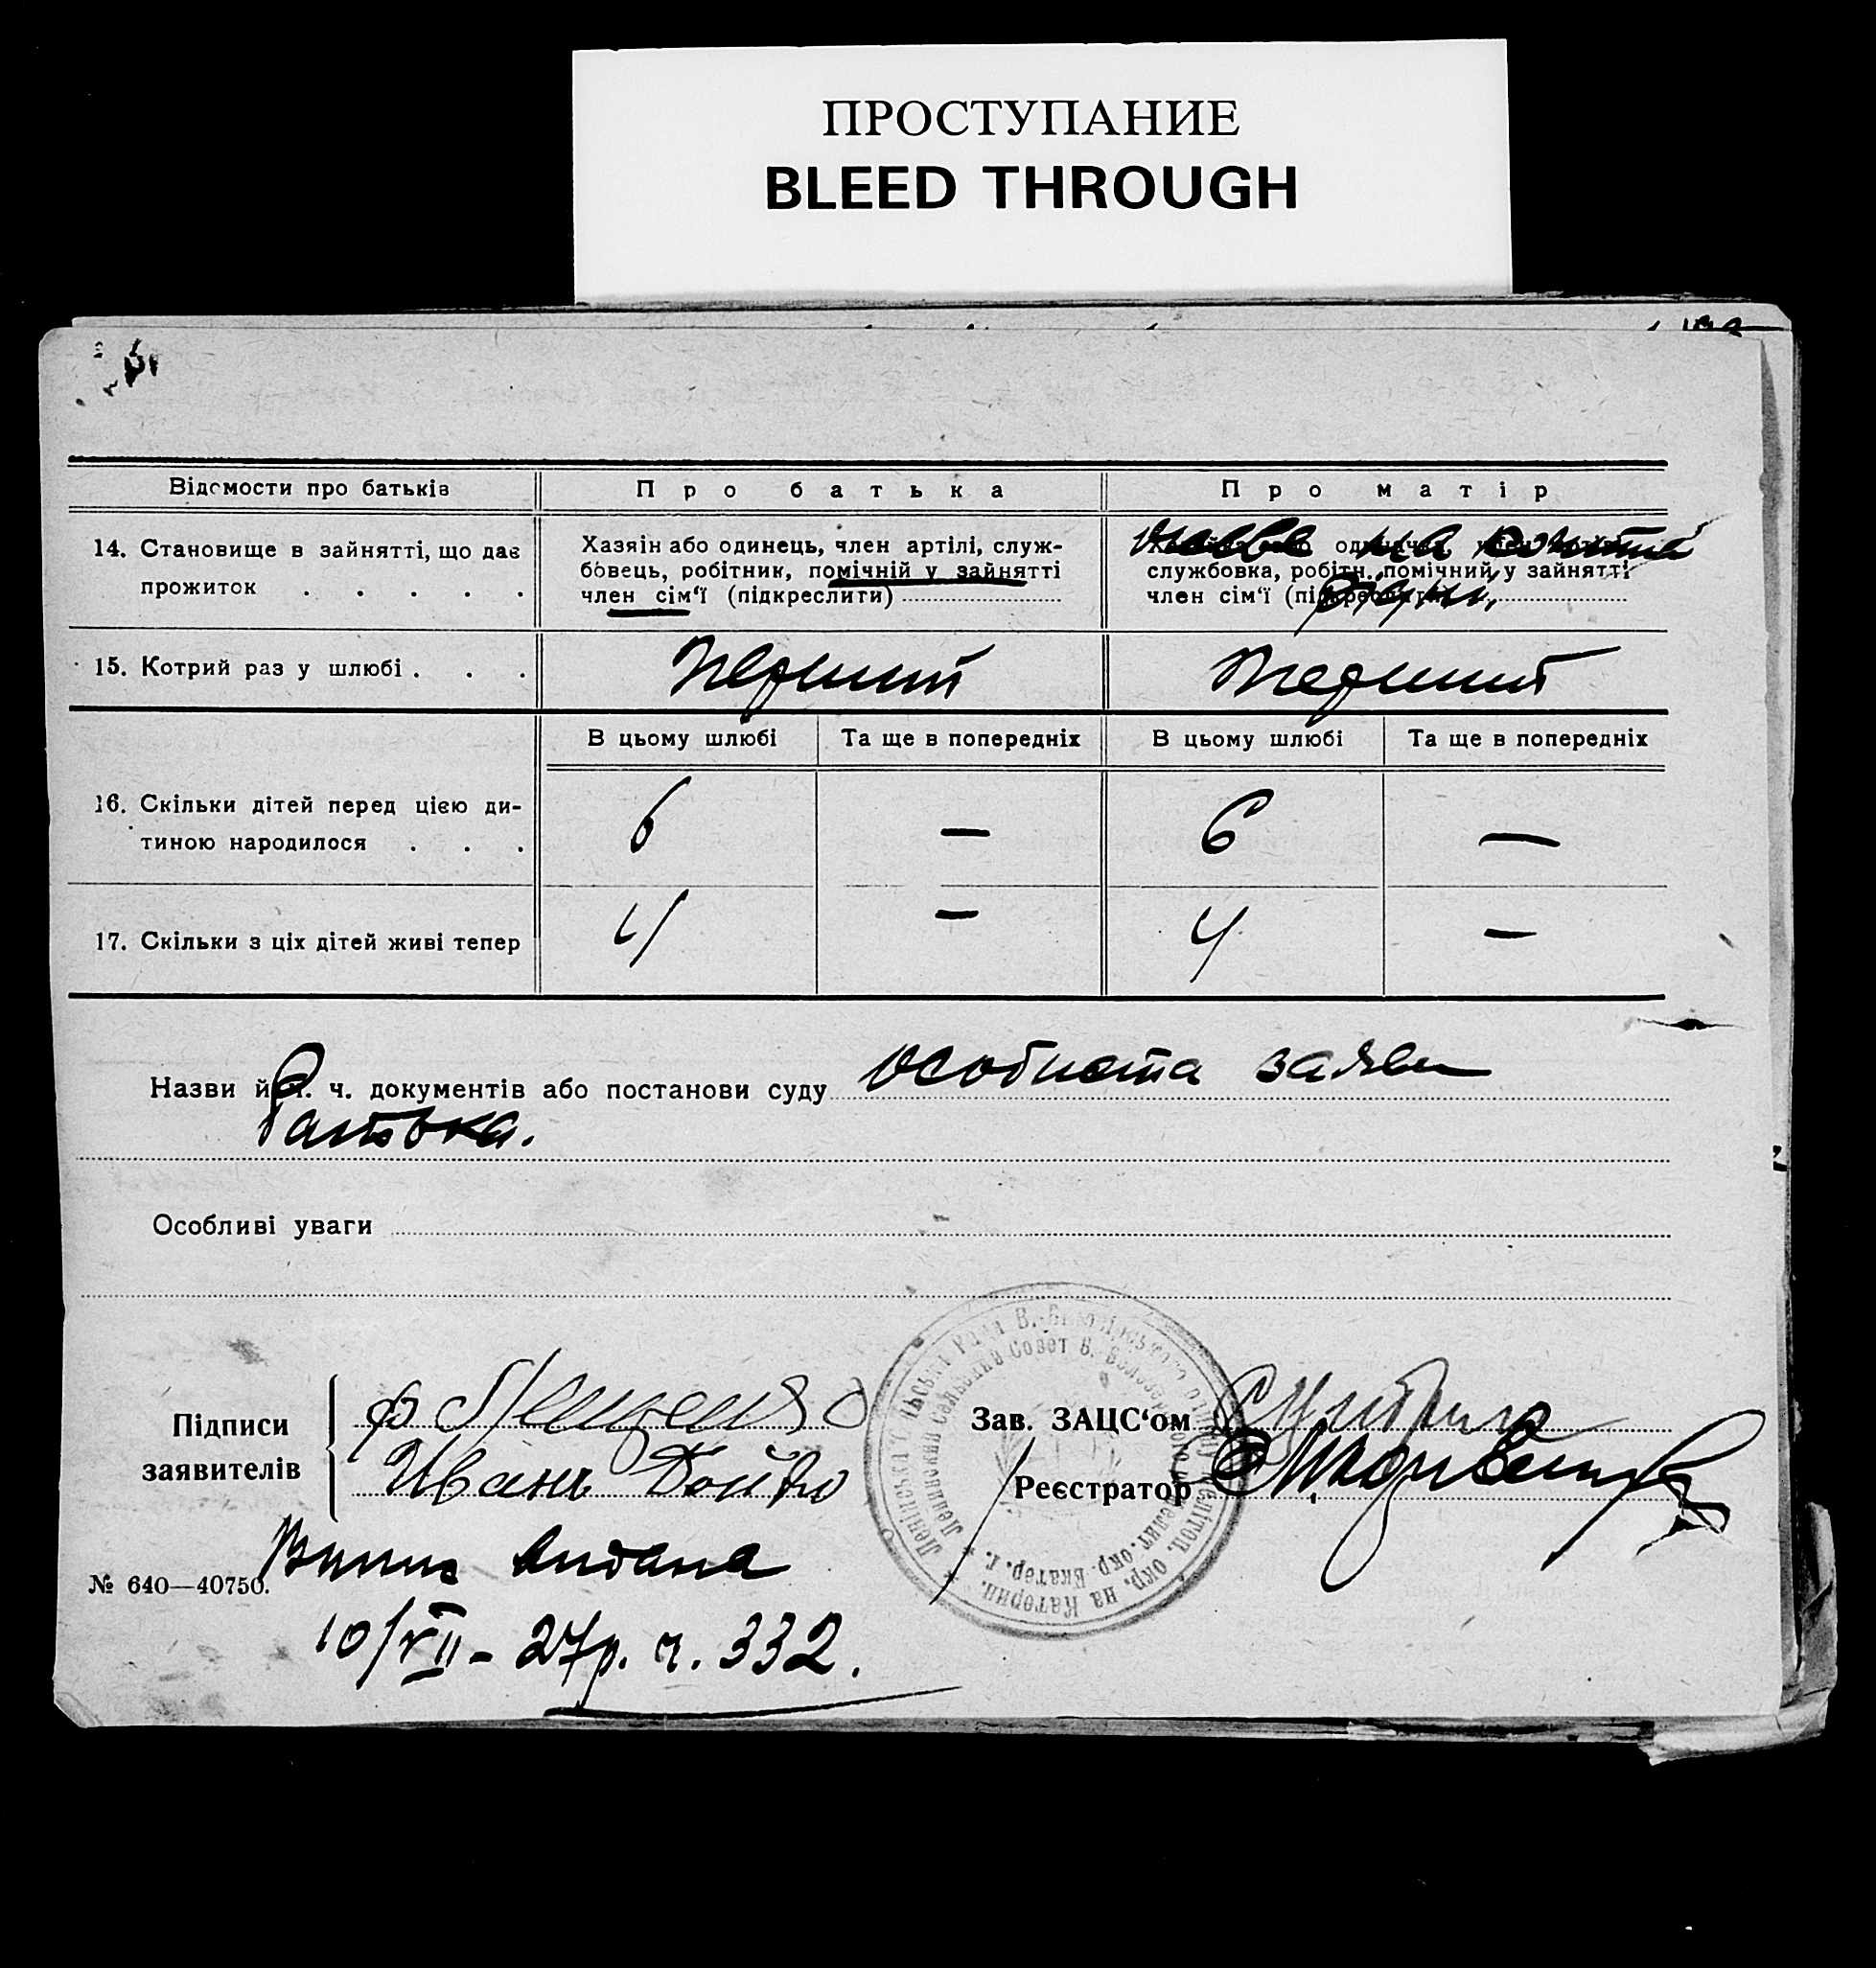 ПРОСТУПАНИЕ
BLEED THROUGH
Відомости про батьків
Про батька
Про матір
14. Становище в зайнятті, що дає
прожиток . . . . .
Хазяін або одинець, член артілі, служ-
бовець, робітник, помічній у зайнятті
член сім‘ї (підкреслити)
живе на кошти
службовка, робітн. помічний у зайнятті
член сім‘ї
15. Котрий раз у шлюбі . . .
Перший
Перший
В цьому шлюбі
Та ще в попередніх
В цьому шлюбі
Та ще в попередніх
16. Скільки дітей перед цією ди-
тиною народилося . . .
6
—
6
—
17. Скільки з ціх дітей живі тепер
4
—
4
—
Назви й ч. документів або постанови суду особиста заява
батька.
Особливі уваги
Підписи
заявителів
Иванъ Бойко
Зав. ЗАЦС‘ом
Реєстратор
№ 640—40750.
Випис видана
10/VII - 27р. ч. 332.